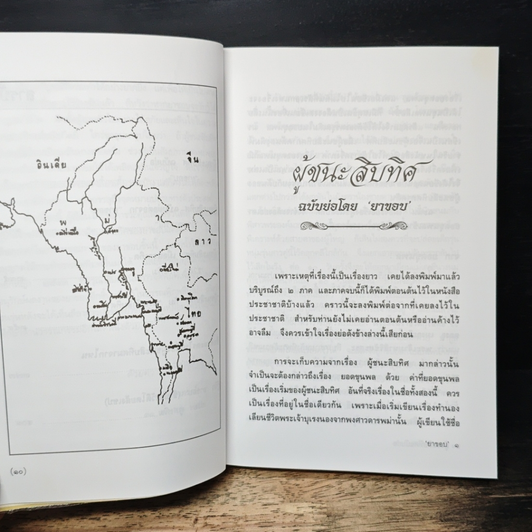 อินเดีย
จีน
พ ม่ า
ลาว
ไทย
(๑๐)
ผู้ชนะสิบทิศ
ฉบับย่อโดย 'ยาขอบ'
เพราะเหตุที่เรื่องนี้เป็นเรื่องยาว เคยได้ลงพิมพ์มาแล้ว
บริบูรณ์ถึง ๒ ภาค และภาคจบนี้ก็ได้พิมพ์ตอนต้นไว้ในหนังสือ
ประชาชาติบ้างแล้ว คราวนี้จะลงพิมพ์ต่อจากที่เคยลงไว้ใน
ประชาชาติ สำหรับท่านยังไม่เคยอ่านตอนต้นหรืออ่านค้างไว้
อาจลืม จึงควรเข้าใจเรื่องย่อดังข้างล่างนี้เสียก่อน
การจะเก็บความจากเรื่อง ผู้ชนะสิบทิศ มากล่าวนั้น
จำเป็นจะต้องกล่าวถึงเรื่อง ยอดขุนพล ด้วย ค่าที่ยอดขุนพล
เป็นเรื่องเริ่มของผู้ชนะสิบทิศ อันที่จริงเรื่องในชื่อทั้งสองนี้ ควร
เป็นเรื่องที่อยู่ในชื่อเดียวกัน เพราะเมื่อเริ่มเขียนเรื่องทำนอง
เลียนชีวิตพระเจ้าบุเรงนองจากพงศาวดารพม่านั้น ผู้เขียนใช้ชื่อ
'ยาขอบ' ๑